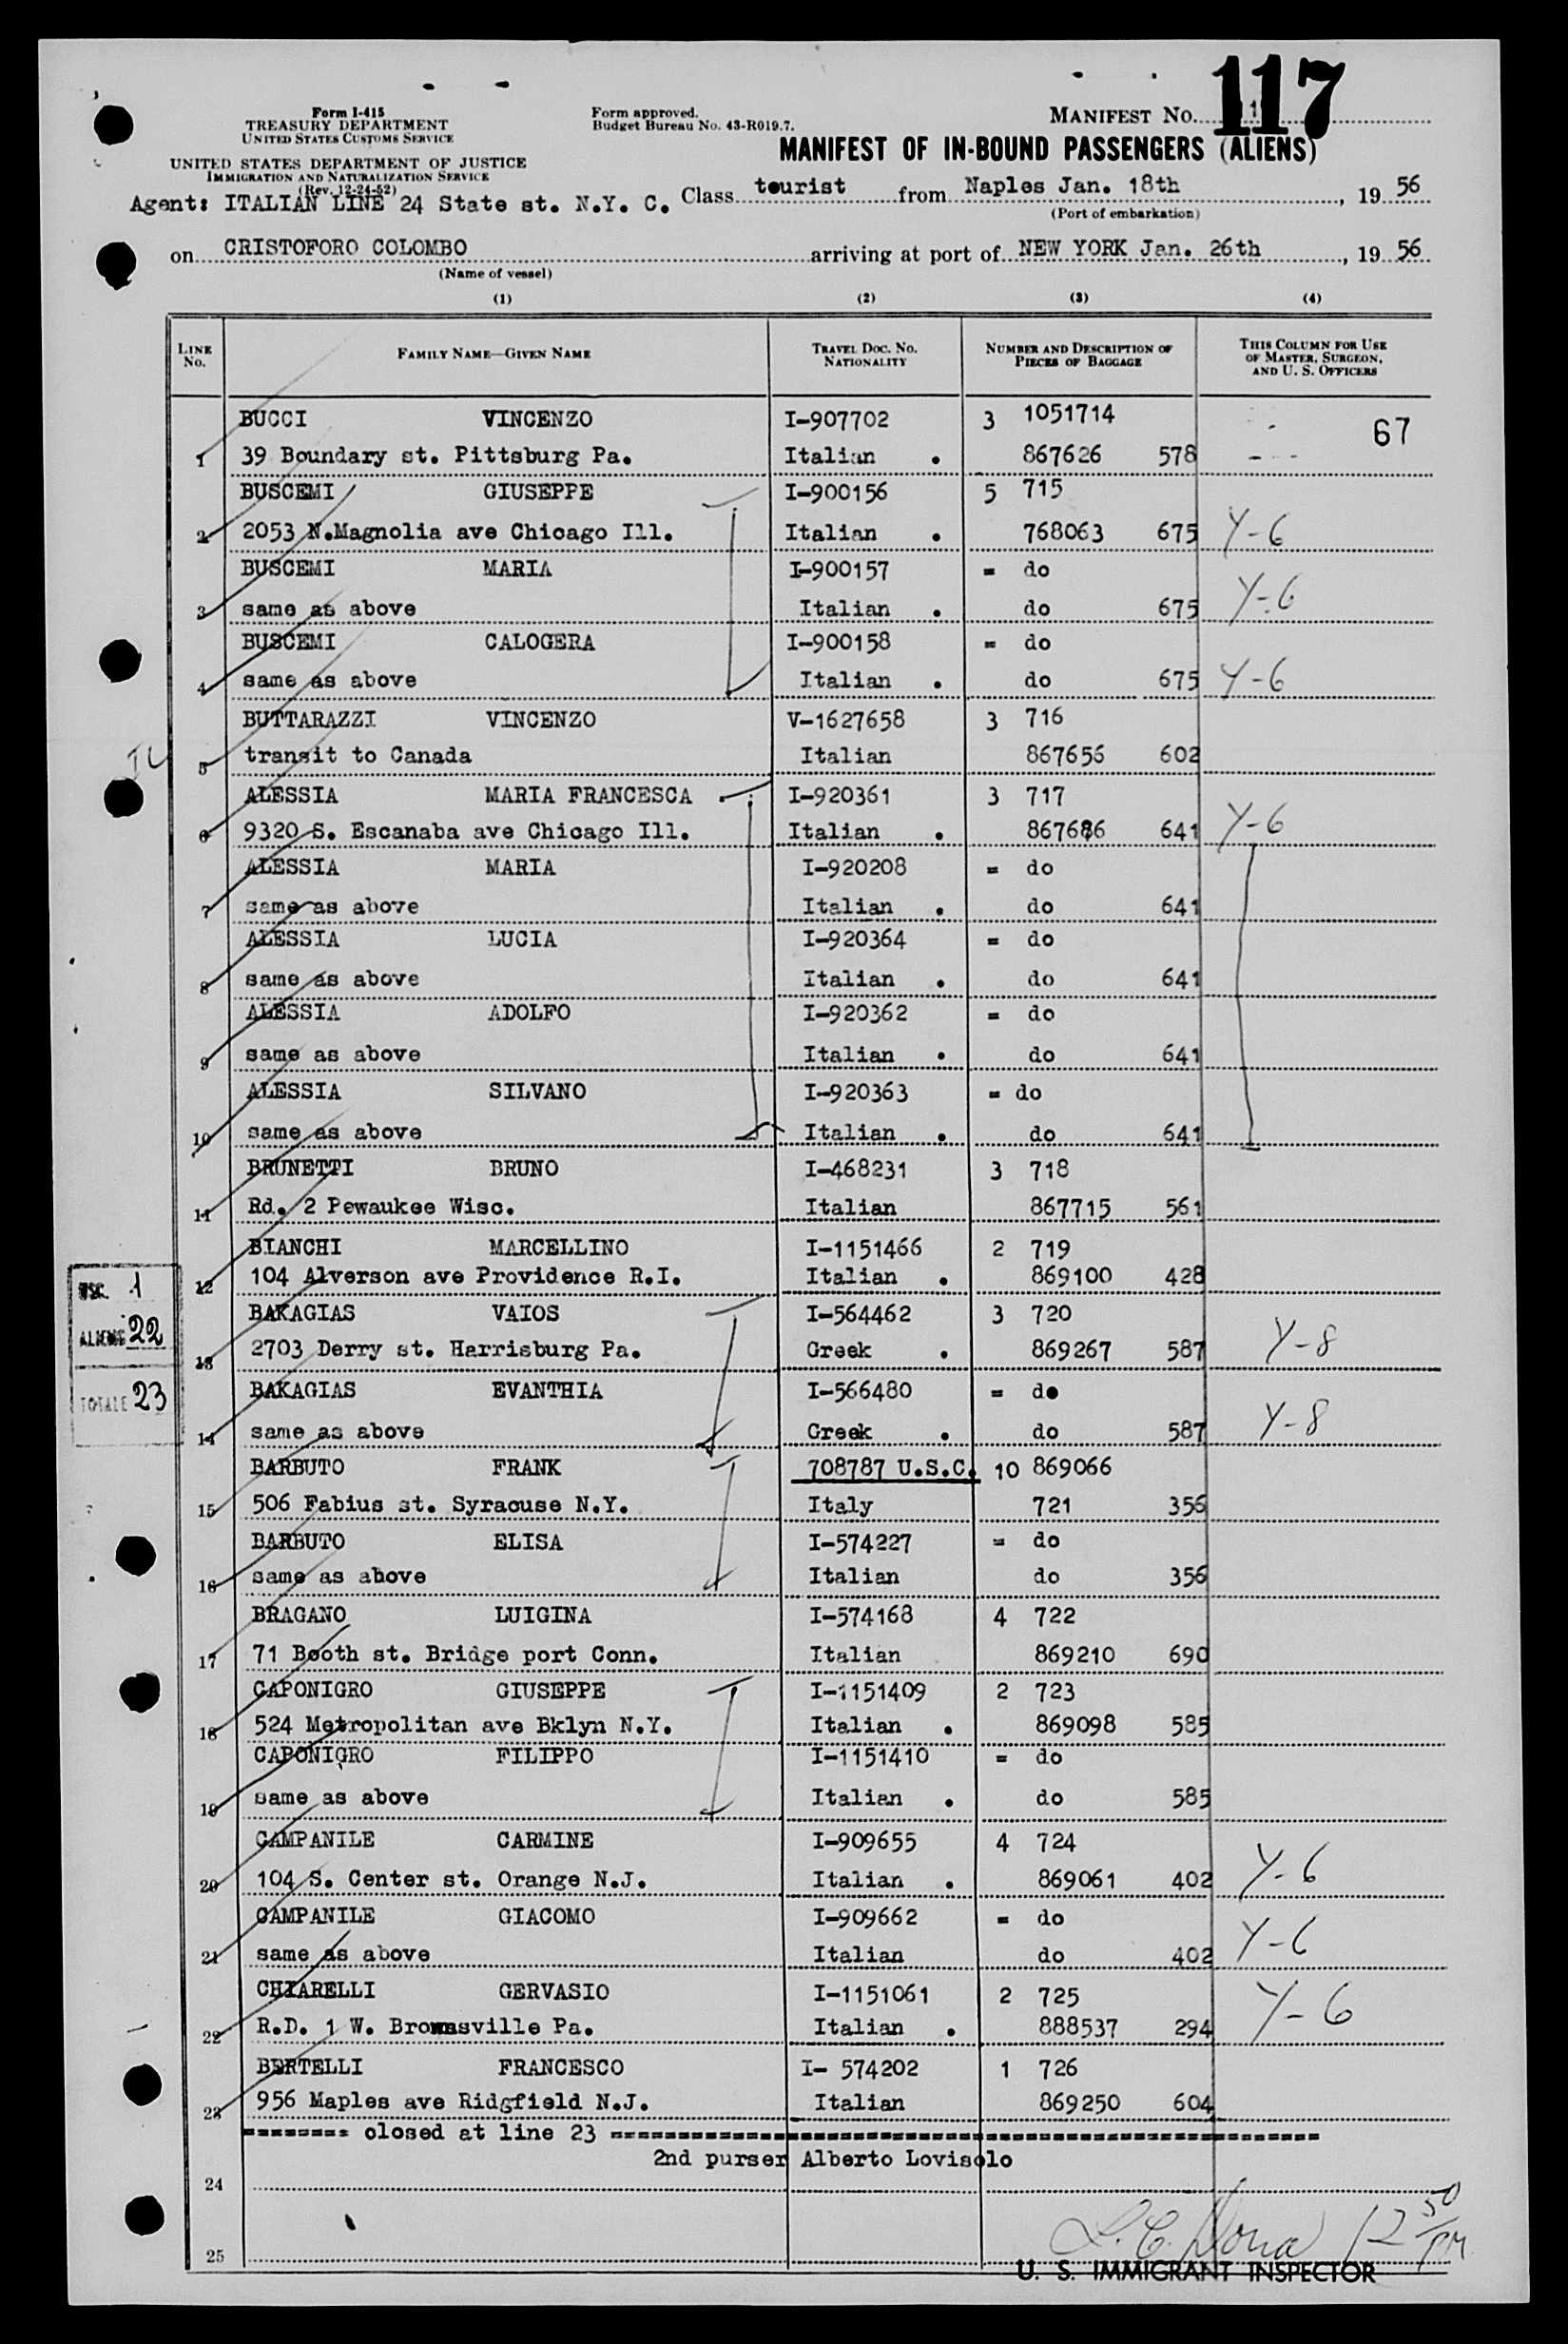 117
Form I-415
TREASURY DEPARTMENT
UNITED STATES CUSTOMS SERVICE
UNITED STATES DEPARTMENT OF JUSTICE
IMMIGRATION AND NATURALIZATION SERVICE
(Rev. 12-24-52)
Form approved.
Budget Bureau No. 43-R019.7.
MANIFEST NO.
MANIFEST OF IN-BOUND PASSENGERS (ALIENS)
Agent: ITALIAN LINE 24 State st. N.Y. C. Class tourist from Naples Jan. 18th, 19 56
(Port of embarkation)
on CRISTOFORO COLOMBO arriving at port of NEW YORK Jan. 26th, 19 56
(Name of vessel)
(1) (2) (3) (4)
LINE NO. FAMILY NAME—GIVEN NAME TRAVEL DOC. NO. NATIONALITY NUMBER AND DESCRIPTION OF PIECES OF BAGGAGE THIS COLUMN FOR USE OF MASTER, SURGEON, AND U. S. OFFICERS
BUCCI VINCENZO I-907702 3 1051714 67
1 39 Boundary st. Pittsburg Pa. Italian . 867626 578
BUSCEMI GIUSEPPE I-900156 5 715
2 2053 N.Magnolia ave Chicago Ill. Italian . 768063 675 Y-6
BUSCEMI MARIA I-900157 = do
3 same as above Italian . do 675 Y-6
BUSCEMI CALOGERA I-900158 = do
4 same as above Italian . do 675 Y-6
BUTTARAZZI VINCENZO V-1627658 3 716
5 transit to Canada Italian 867656 602
ALESSIA MARIA FRANCESCA I-920361 3 717
6 9320 S. Escanaba ave Chicago Ill. Italian . 867686 641 Y-6
ALESSIA MARIA I-920208 = do
7 same as above Italian . do 641
ALESSIA LUCIA I-920364 = do
8 same as above Italian . do 641
ALESSIA ADOLFO I-920362 = do
9 same as above Italian . do 641
ALESSIA SILVANO I-920363 = do
10 same as above Italian . do 641
BRUNETTI BRUNO I-468231 3 718
11 Rd. 2 Pewaukee Wisc. Italian 867715 561
BIANCHI MARCELLINO I-1151466 2 719
12 104 Alverson ave Providence R.I. Italian . 869100 428
USC. 1
ALIENS 22
TOTALE 23
BAKAGIAS VAIOS I-564462 3 720
13 2703 Derry st. Harrisburg Pa. Greek . 869267 587 Y-8
BAKAGIAS EVANTHIA I-566480 = do
14 same as above Greek . do 587 Y-8
BARBUTO FRANK 708787 U.S.C. 10 869066
15 506 Fabius st. Syracuse N.Y. Italy 721 356
BARBUTO ELISA I-574227 = do
16 same as above Italian do 356
BRAGANO LUIGINA I-574168 4 722
17 71 Booth st. Bridge port Conn. Italian 869210 690
CAPONIGRO GIUSEPPE I-1151409 2 723
18 524 Metropolitan ave Bklyn N.Y. Italian . 869098 585
CAPONIGRO FILIPPO I-1151410 = do
19 same as above Italian . do 585
CAMPANILE CARMINE I-909655 4 724
20 104 S. Center st. Orange N.J. Italian . 869061 402 Y-6
CAMPANILE GIACOMO I-909662 = do
21 same as above Italian do 402 Y-6
CHIARELLI GERVASIO I-1151061 2 725
22 R.D. 1 W. Brownsville Pa. Italian . 888537 294 Y-6
BERTELLI FRANCESCO I- 574202 1 726
23 956 Maples ave Ridgfield N.J. Italian 869250 604
======== closed at line 23 ========
2nd purser Alberto Lovisolo
24
25
12 50 PM
U. S. IMMIGRANT INSPECTOR